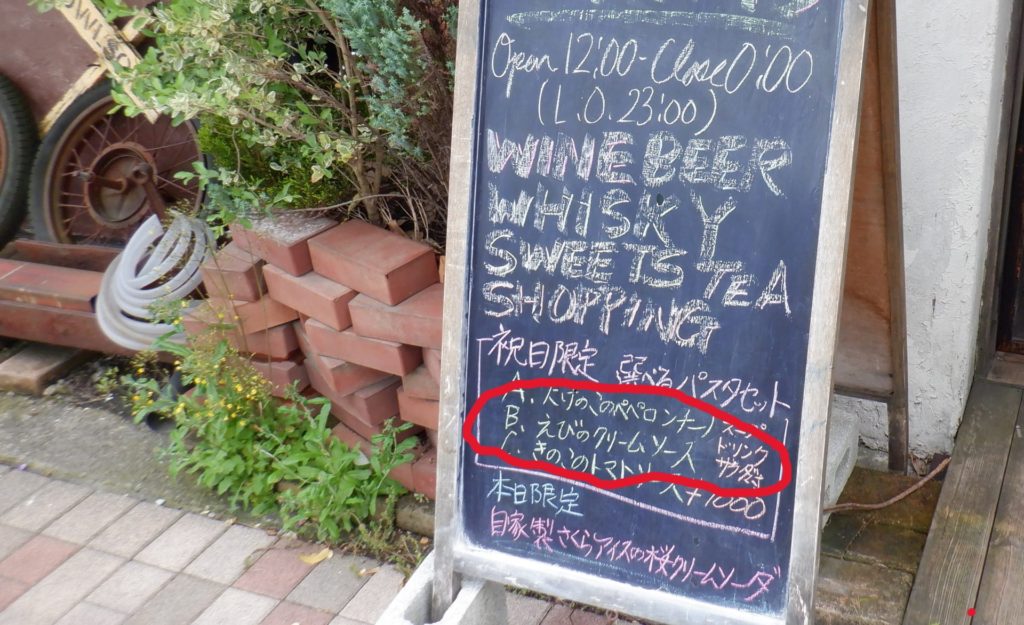 Open 12:00-Close 0:00
(L.O. 23:00)
WINE BEER
WHISKY
SWEETS TEA
SHOPPING
祝日限定 選べるパスタセット
A. たけのこのペペロンチーノ スープ
B. えびのクリームソース ドリンク
C. きのこのトマトソース サラダ付き
¥1000
本日限定
自家製さくらアイスの桜クリームソーダ